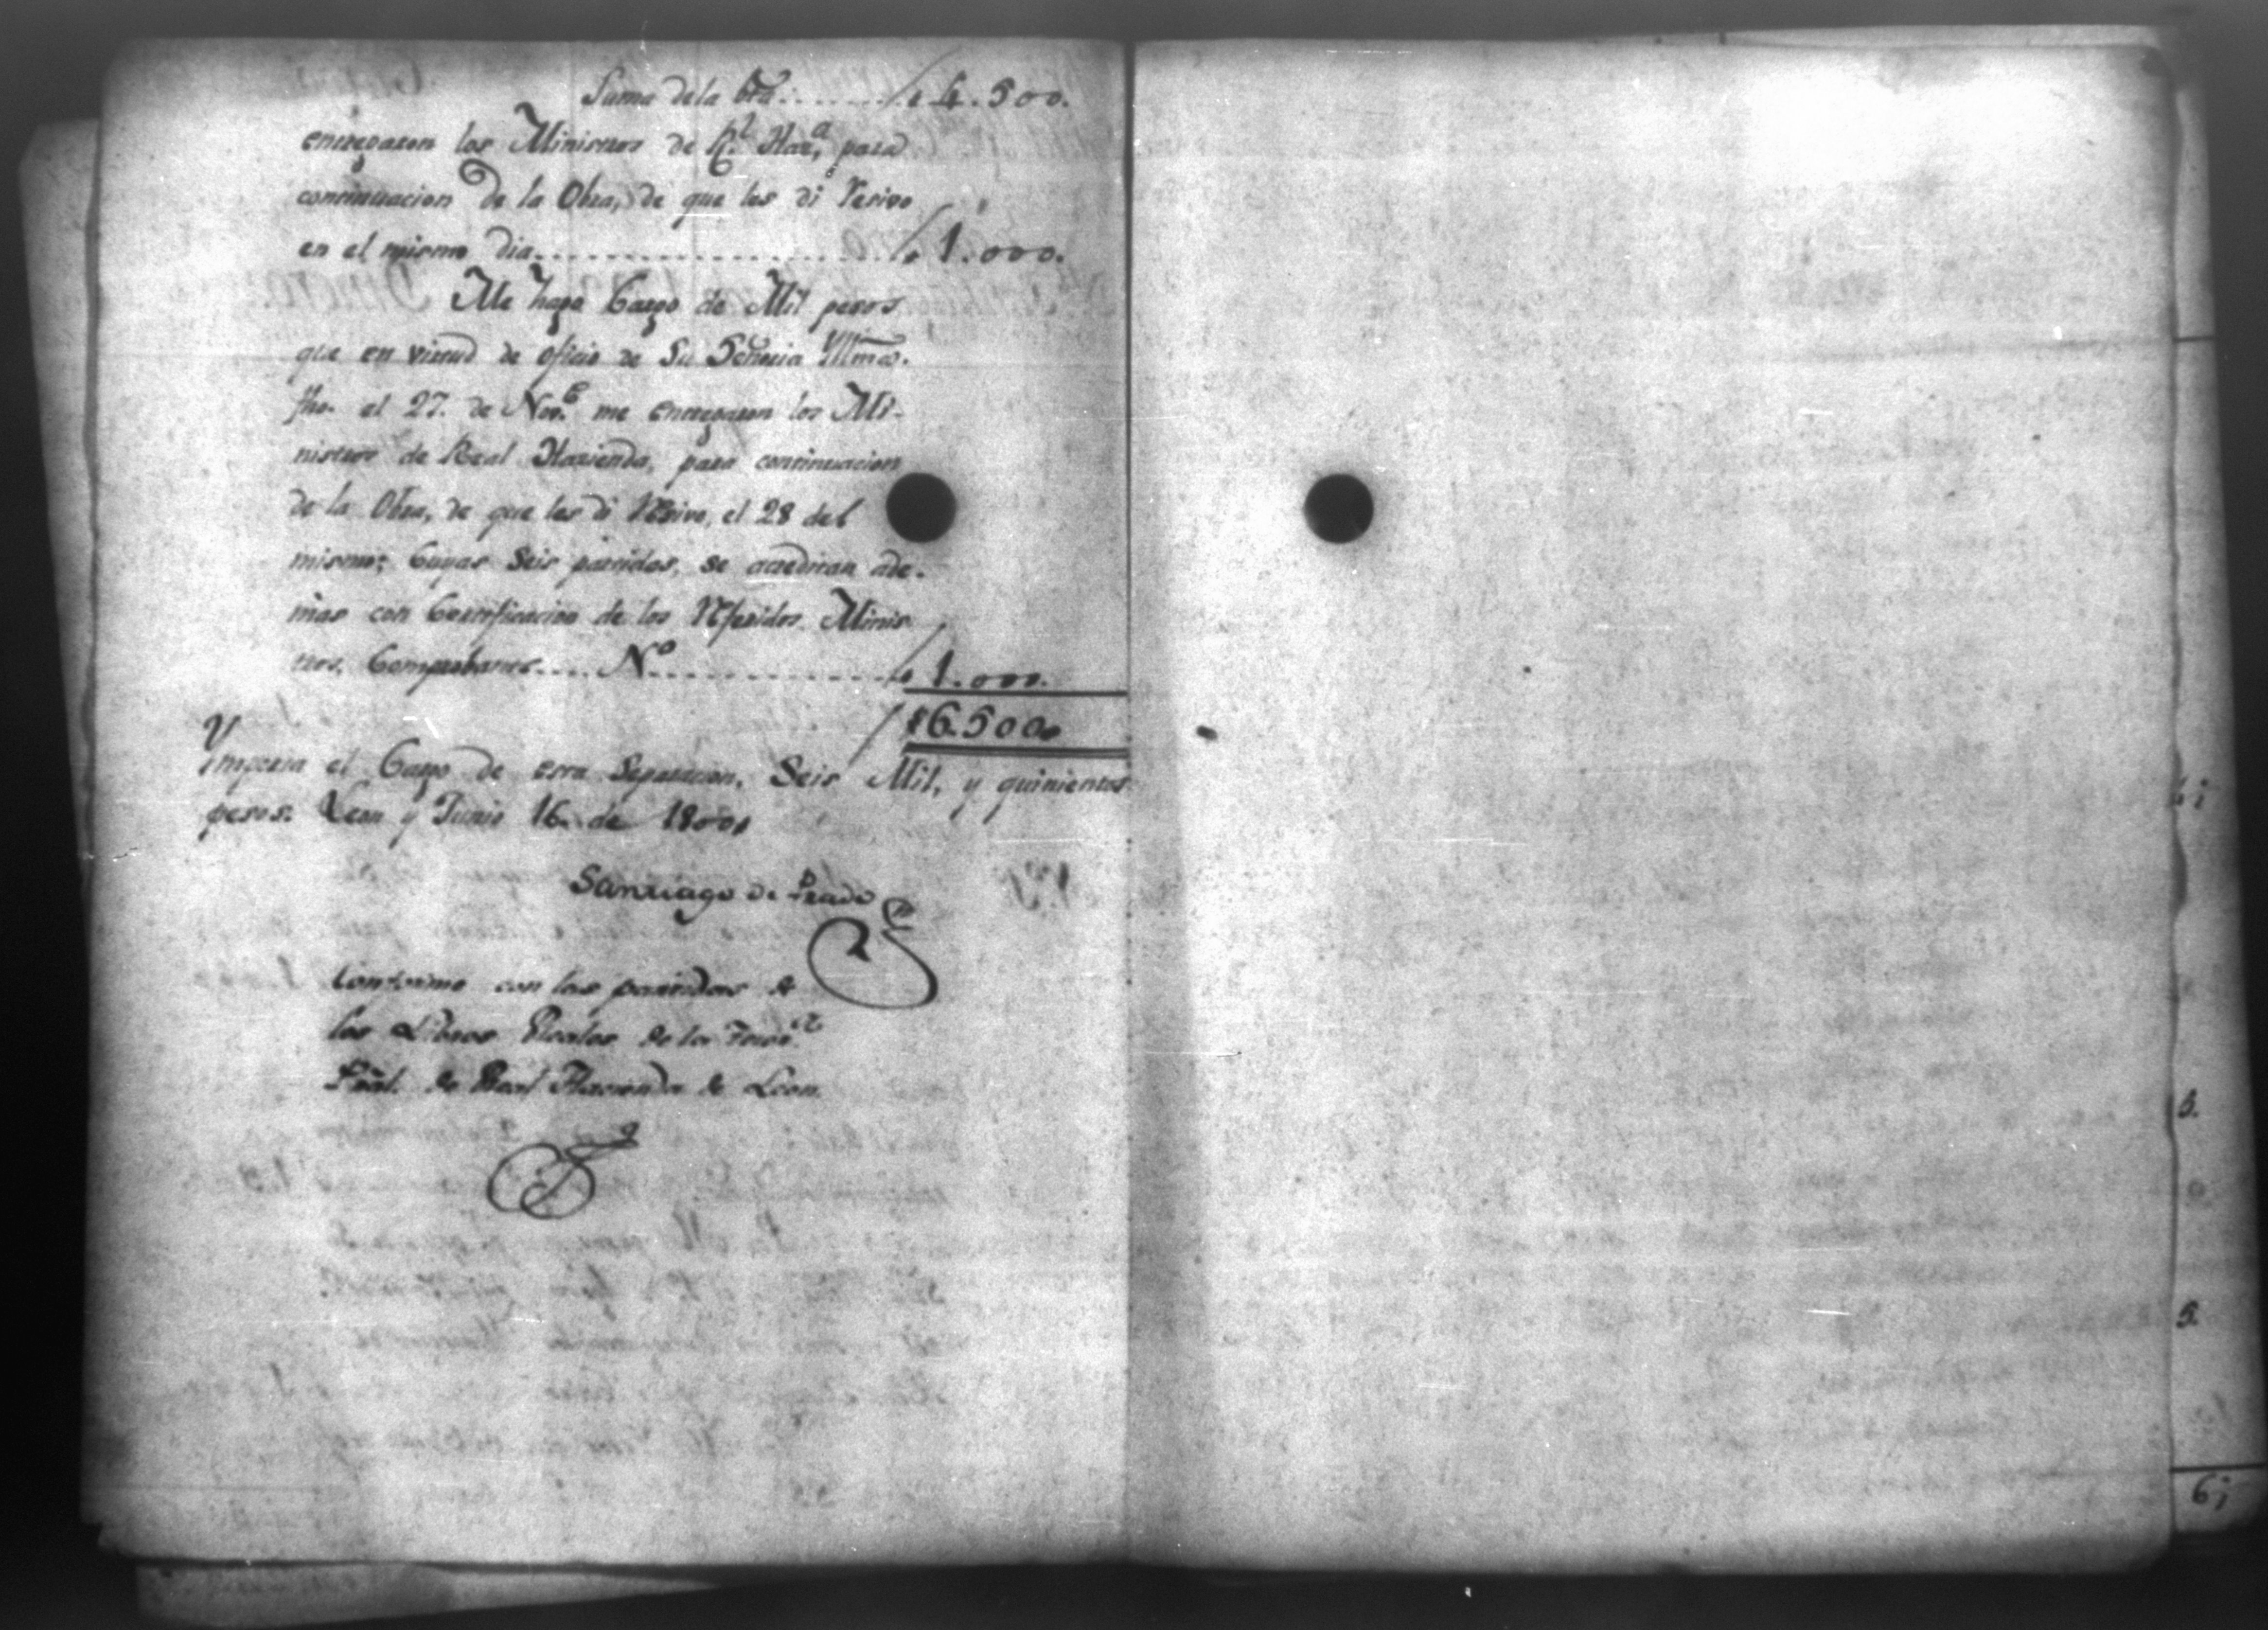 Suma de la bta......... 4.500.
entregaron los Ministros de Rl. Haza, para
continuacion de la Obra, de que les di Resivo
en el mismo dia........................ 1.000.
Me hago Cargo de Mil pesos
que en virtud de oficio de Su Señoria Illma.
fho. el 27. de Nove. me entregaron los Mi-
nistros de Real Hazienda, para continuacion
de la Obra, de que les di Resivo, el 28 del
mismo; Cuyas Seis partidas, se acreditan ade-
mas con Certificacion de los Referidos Minis
tros, Comprobante.... No.................. 1.000.
6.500.
Ymporta el Cargo de esta Separacion, Seis Mil, y quinientos
pesos. Leon y Junio 16. de 1800.
Santiago de Prado
Conforme con las partidas de
los Libros Reales de la
Pral. de Real Hacienda de Leon.
3.
5.